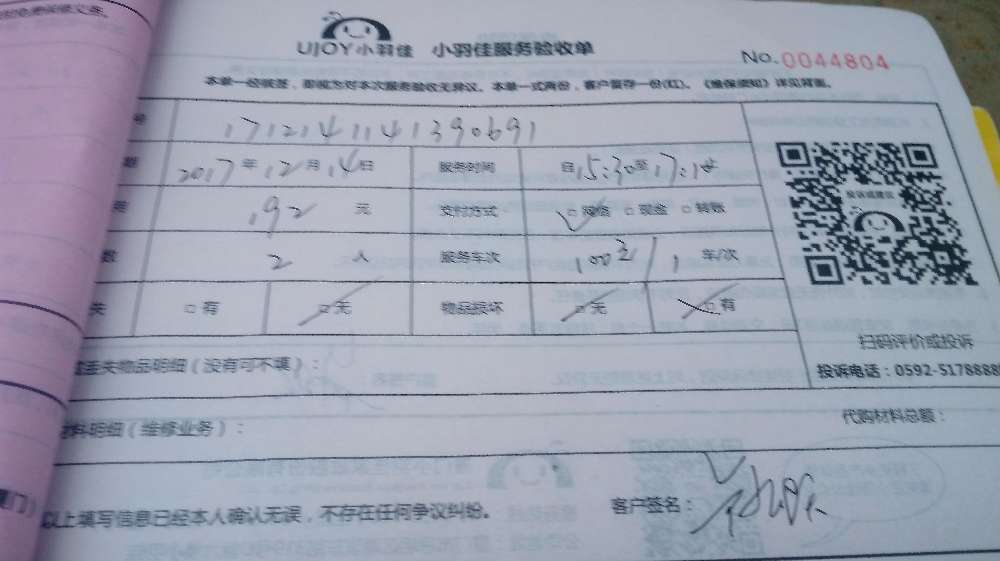 UJOY小羽佳 小羽佳服务验收单
No. 0044804
本单一经核签，即视方对本次服务验收无异议。本单一式两份，客户留存一份(红)。《维保须知》详见背面。
号 1712141141390691
期 2017年12月14日 服务时间 自15:30至17:18
192元 支付方式 □微信 □现金 □转账
数 2人 服务车次 1车/次
失 □有 □无 物品损坏 □无 □有
丢失物品明细（没有可不填）：
扫码评价或投诉
投诉电话：0592-5178888
材料明细（维修业务）： 代购材料总额：
门）
以上填写信息已经本人确认无误，不存在任何争议纠纷。 客户签名：